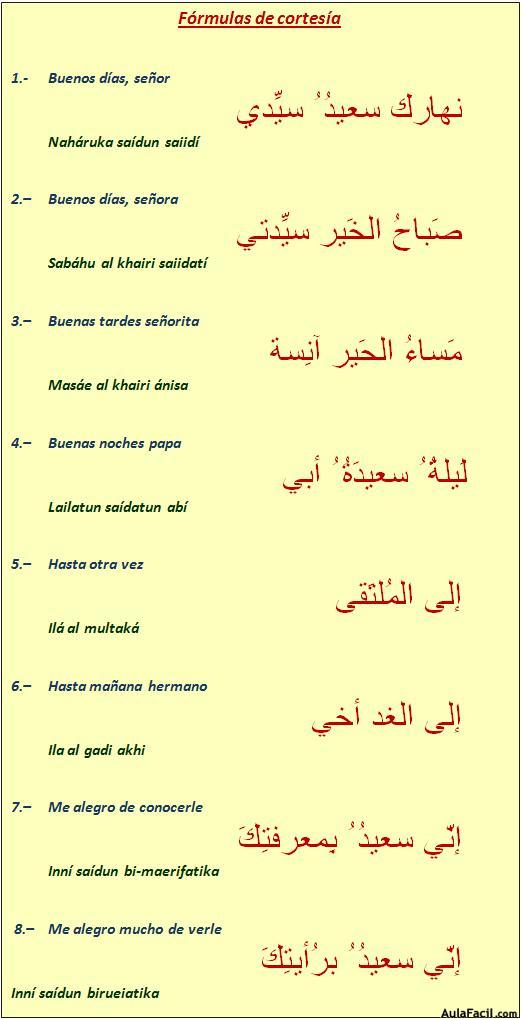 Fórmulas de cortesía
1.- Buenos días, señor
نهارك سعيدُ ُ سيِّدي
Naháruka saídun saiidí
2.– Buenos días, señora
صَباحُ الخَير سيِّدتي
Sabáhu al khairi saiidatí
3.– Buenas tardes señorita
مَساءُ الحَير آنِسة
Masáe al khairi ánisa
4.– Buenas noches papa
لَيلةُ ُ سعيدَةُ ُ أبي
Lailatun saídatun abí
5.– Hasta otra vez
إلى المُلتَقى
Ilá al multaká
6.– Hasta mañana hermano
إلى الغد أخي
Ila al gadi akhi
7.– Me alegro de conocerle
إنّي سعيدُ ُ بِمعرفتِكَ
Inní saídun bi-maerifatika
8.– Me alegro mucho de verle
إنّي سعيدُ ُ برُأيتِكَ
Inní saídun birueiatika
AulaFacil.com